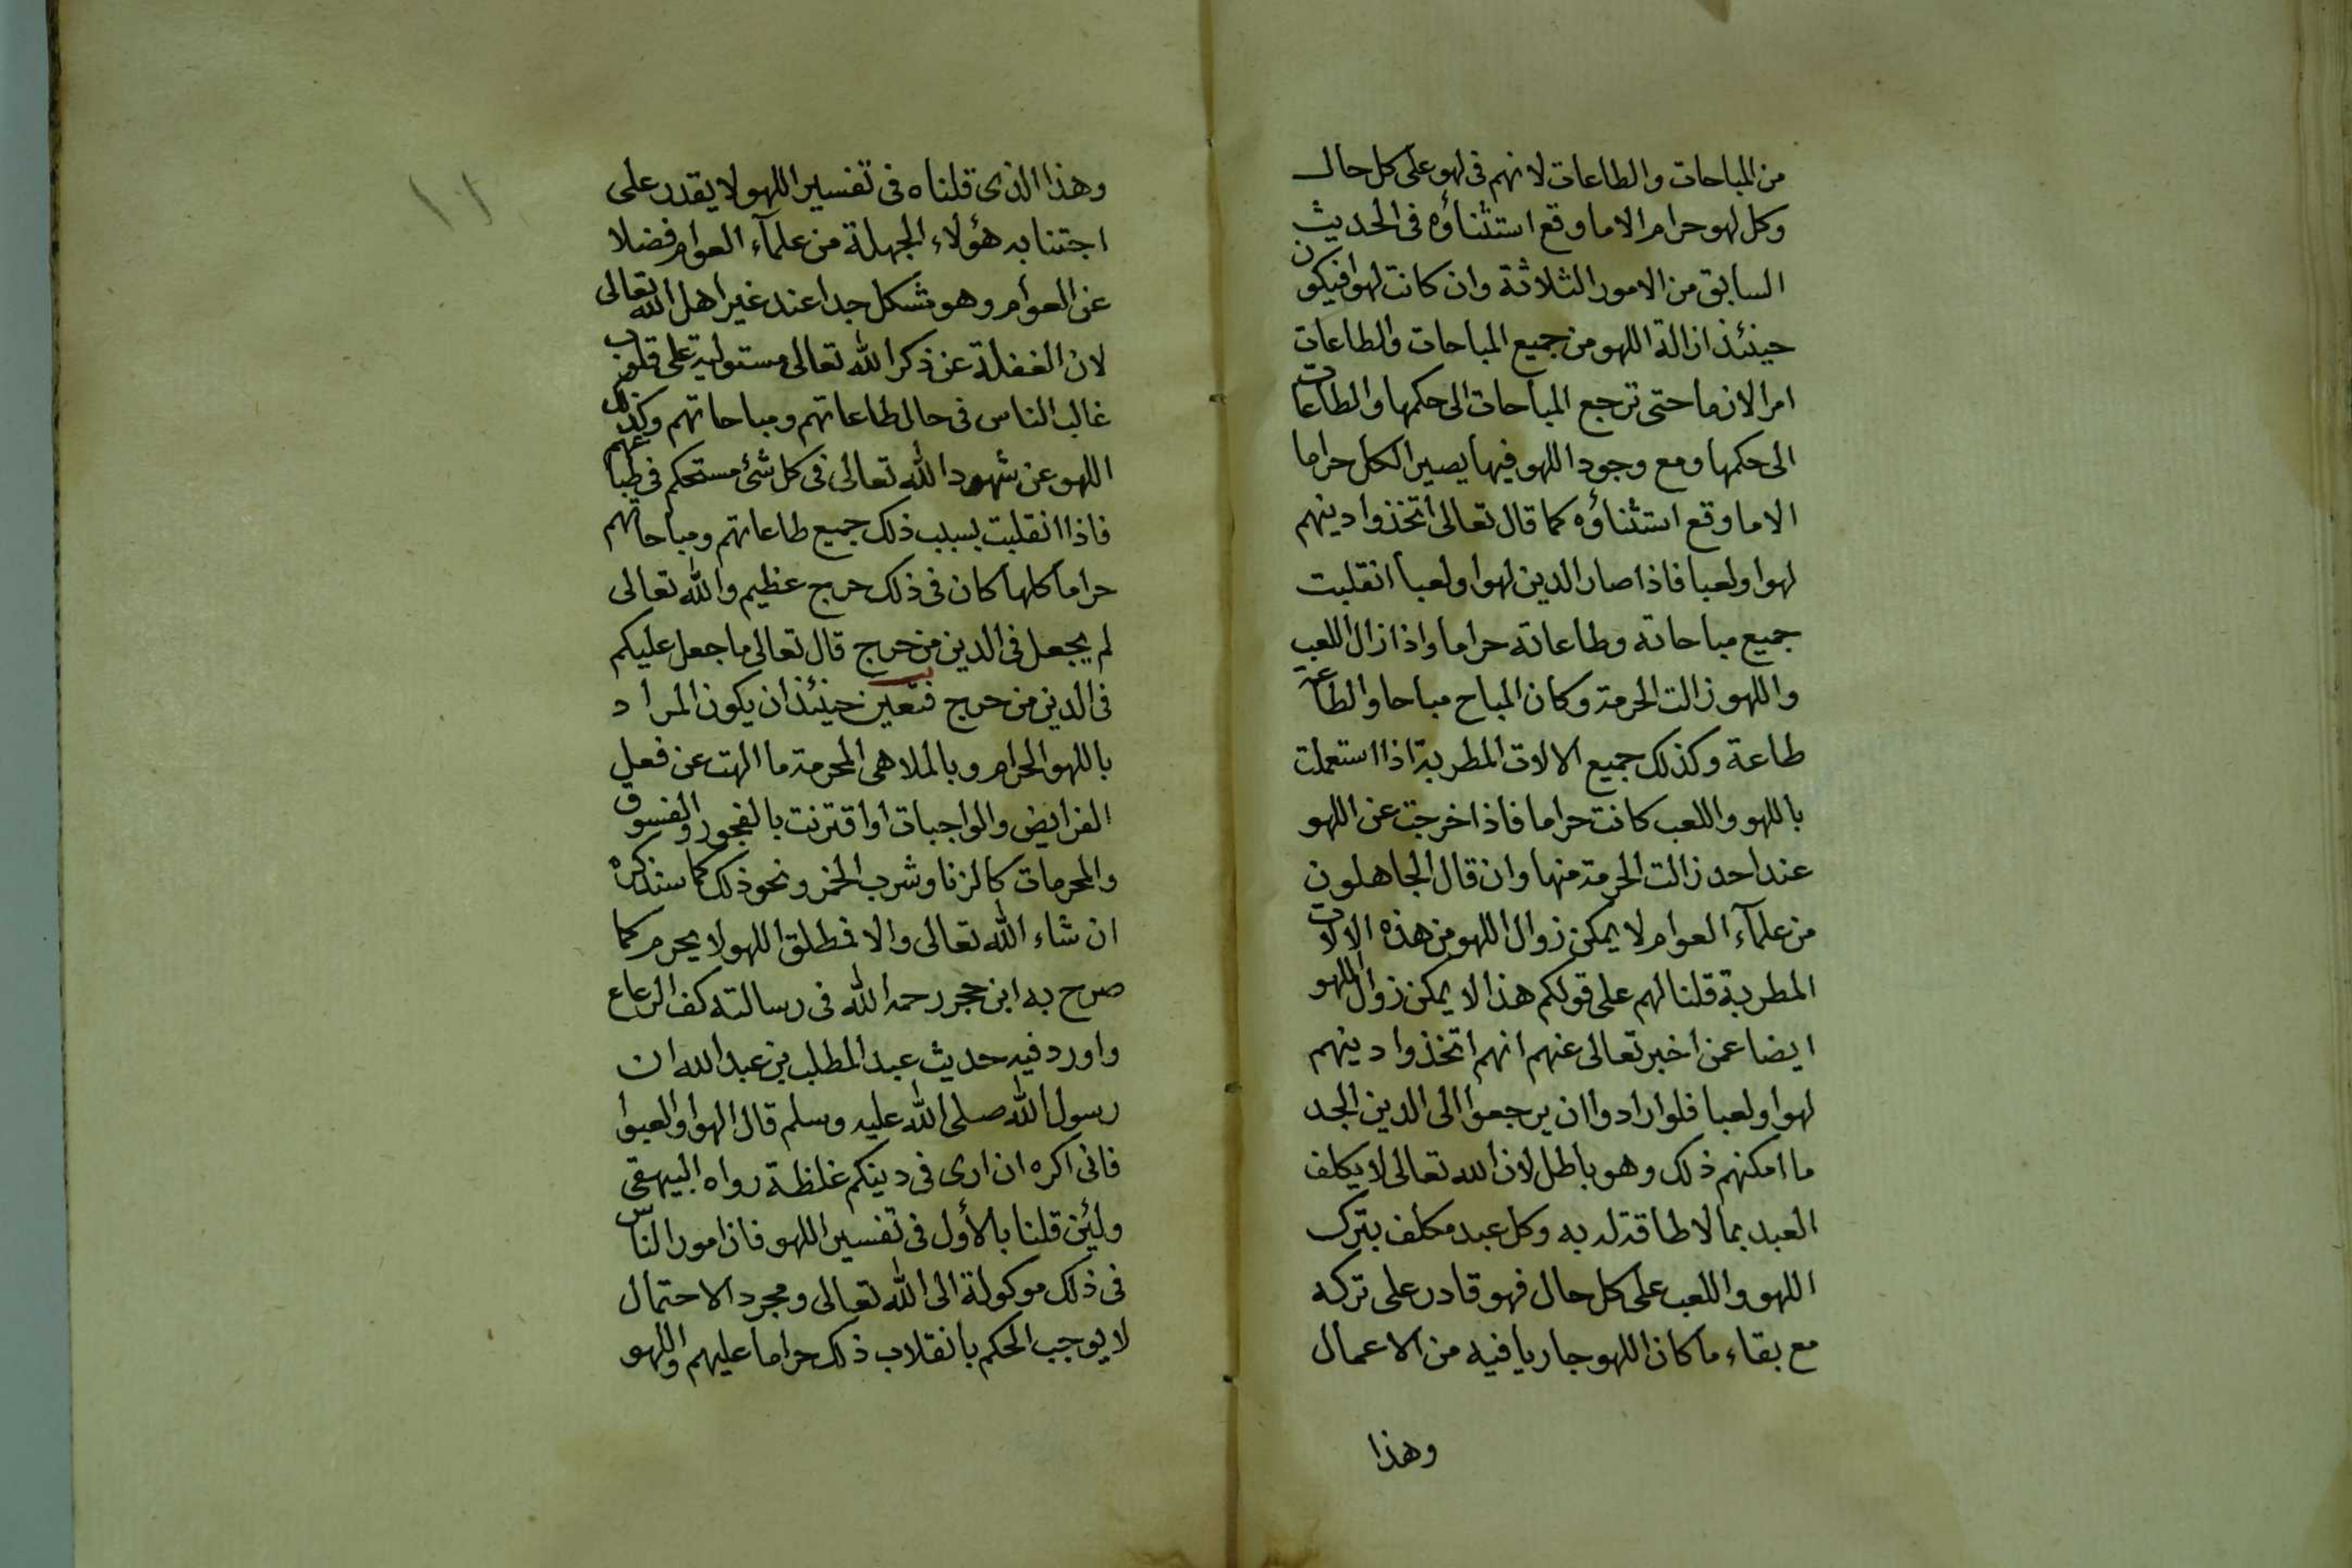 من المباحات والطاعات لانهم فى لهو على كل حال
وكل لهو حرام الا ما وقع استثناؤه فى الحديث
السابق من الامور الثلاثة وان كانت لهوا فيكون
حينئذ ازالة اللهو من جميع المباحات والطاعات
امرا لازما حتى ترجع المباحات الى حكمها والطاعات
الى حكمها ومع وجود اللهو فيها يصير الكل حراما
الا ما وقع استثناؤه كما قال تعالى اتخذوا دينهم
لهوا ولعبا فاذا صار الدين لهوا ولعبا انقلبت
جميع مباحاته وطاعاته حراما واذا زال اللعب
واللهو زالت الحرمة وكان المباح مباحا والطاعة
طاعة وكذلك جميع الالات المطربة اذا استعملت
باللهو واللعب كانت حراما فاذا خرجت عن اللهو
عند احد زالت الحرمة منها وان قال الجاهلون
من علمآء العوام لا يمكن زوال اللهو من هذه الالات
المطربة قلنا لهم على قولكم هذا لا يمكن زوال اللهو
ايضا عمن اخبر تعالى عنهم انهم اتخذوا دينهم
لهوا ولعبا فلو ارادوا ان يرجعوا الى الدين الجد
ما امكنهم ذلك وهو باطل لان الله تعالى لا يكلف
العبد بما لا طاقة له به وكل عبد مكلف بترك
اللهو واللعب على كل حال فهو قادر على تركه
مع بقاء ما كان اللهو جاريا فيه من الاعمال
وهذا
١١
وهذا الذى قلناه فى تفسير اللهو لا يقدر على
اجتنابه هؤلاء الجهلة من علمآء العوام فضلا
عن العوام وهو مشكل جدا عند غير اهل الله تعالى
لان الغفلة عن ذكر الله تعالى مستولية على قلوب
غالب الناس فى حال طاعاتهم ومباحاتهم وكذلك
اللهو عن شهود الله تعالى فى كل شئ مستحكم فى طباعهم
فاذا انقلبت بسبب ذلك جميع طاعاتهم ومباحاتهم
حراما كلها كان فى ذلك حرج عظيم والله تعالى
لم يجعل فى الدين من حرج قال تعالى ما جعل عليكم
فى الدين من حرج فتعين حينئذ ان يكون المراد
باللهو الحرام وبالملاهى المحرمة ما الهت عن فعل
الفرايض والواجبات او اقترنت بالفجور والفسوق
والمحرمات كالزنا وشرب الخمر ونحو ذلك كما سنذكره
ان شاء الله تعالى والا فمطلق اللهو لا يحرم كما
صرح به ابن حجر رحمه الله فى رسالته كف الرعاع
واورد فيه حديث عبد المطلب بن عبد الله ان
رسول الله صلى الله عليه وسلم قال الهوا والعبوا
فانى اكره ان ارى فى دينكم غلظة رواه البيهقى
ولئن قلنا بالأول فى تفسير اللهو فان امور الناس
فى ذلك موكولة الى الله تعالى ومجرد الاحتمال
لا يوجب الحكم بانقلاب ذلك حراما عليهم واللهو